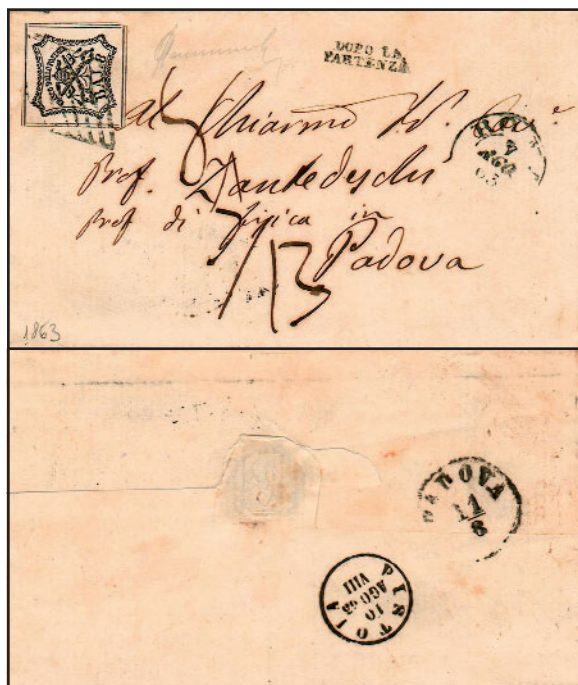 DOPO LA
PARTENZA
Al Chiarmo
Prof. Zantedeschi
Prof di fisica in
Padova
7
AGO
63
13
1863
PADOVA
11
8
PISTOIA
10
AGO 63
VIII